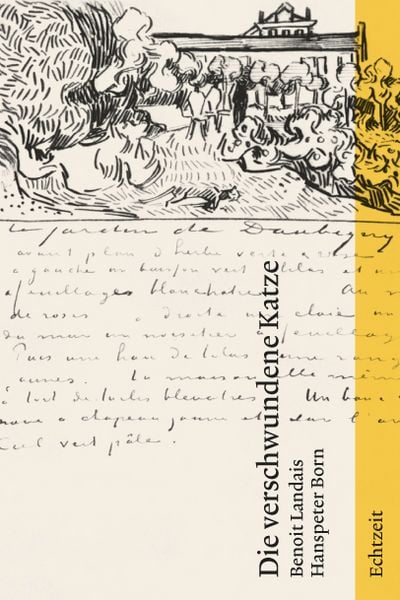 Le jardin de Daubigny
avant plan d'herbe verte & rose
a gauche un buisson vert lilas et un
feuillages blanchatres Au m
de roses a droite une claie un
du mur un noisetier a feuillag
Puis une haie de lilas une rang
jaunes. La maison elle mème
à toit de tuiles bleuatres Un banc
noire a chapeau jaune et sur l'av
Ciel vert pâle.
Die verschwundene Katze
Benoit Landais
Hanspeter Born
Echtzeit